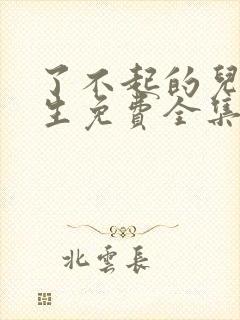 了不起的兒
生免費全集
北雲長